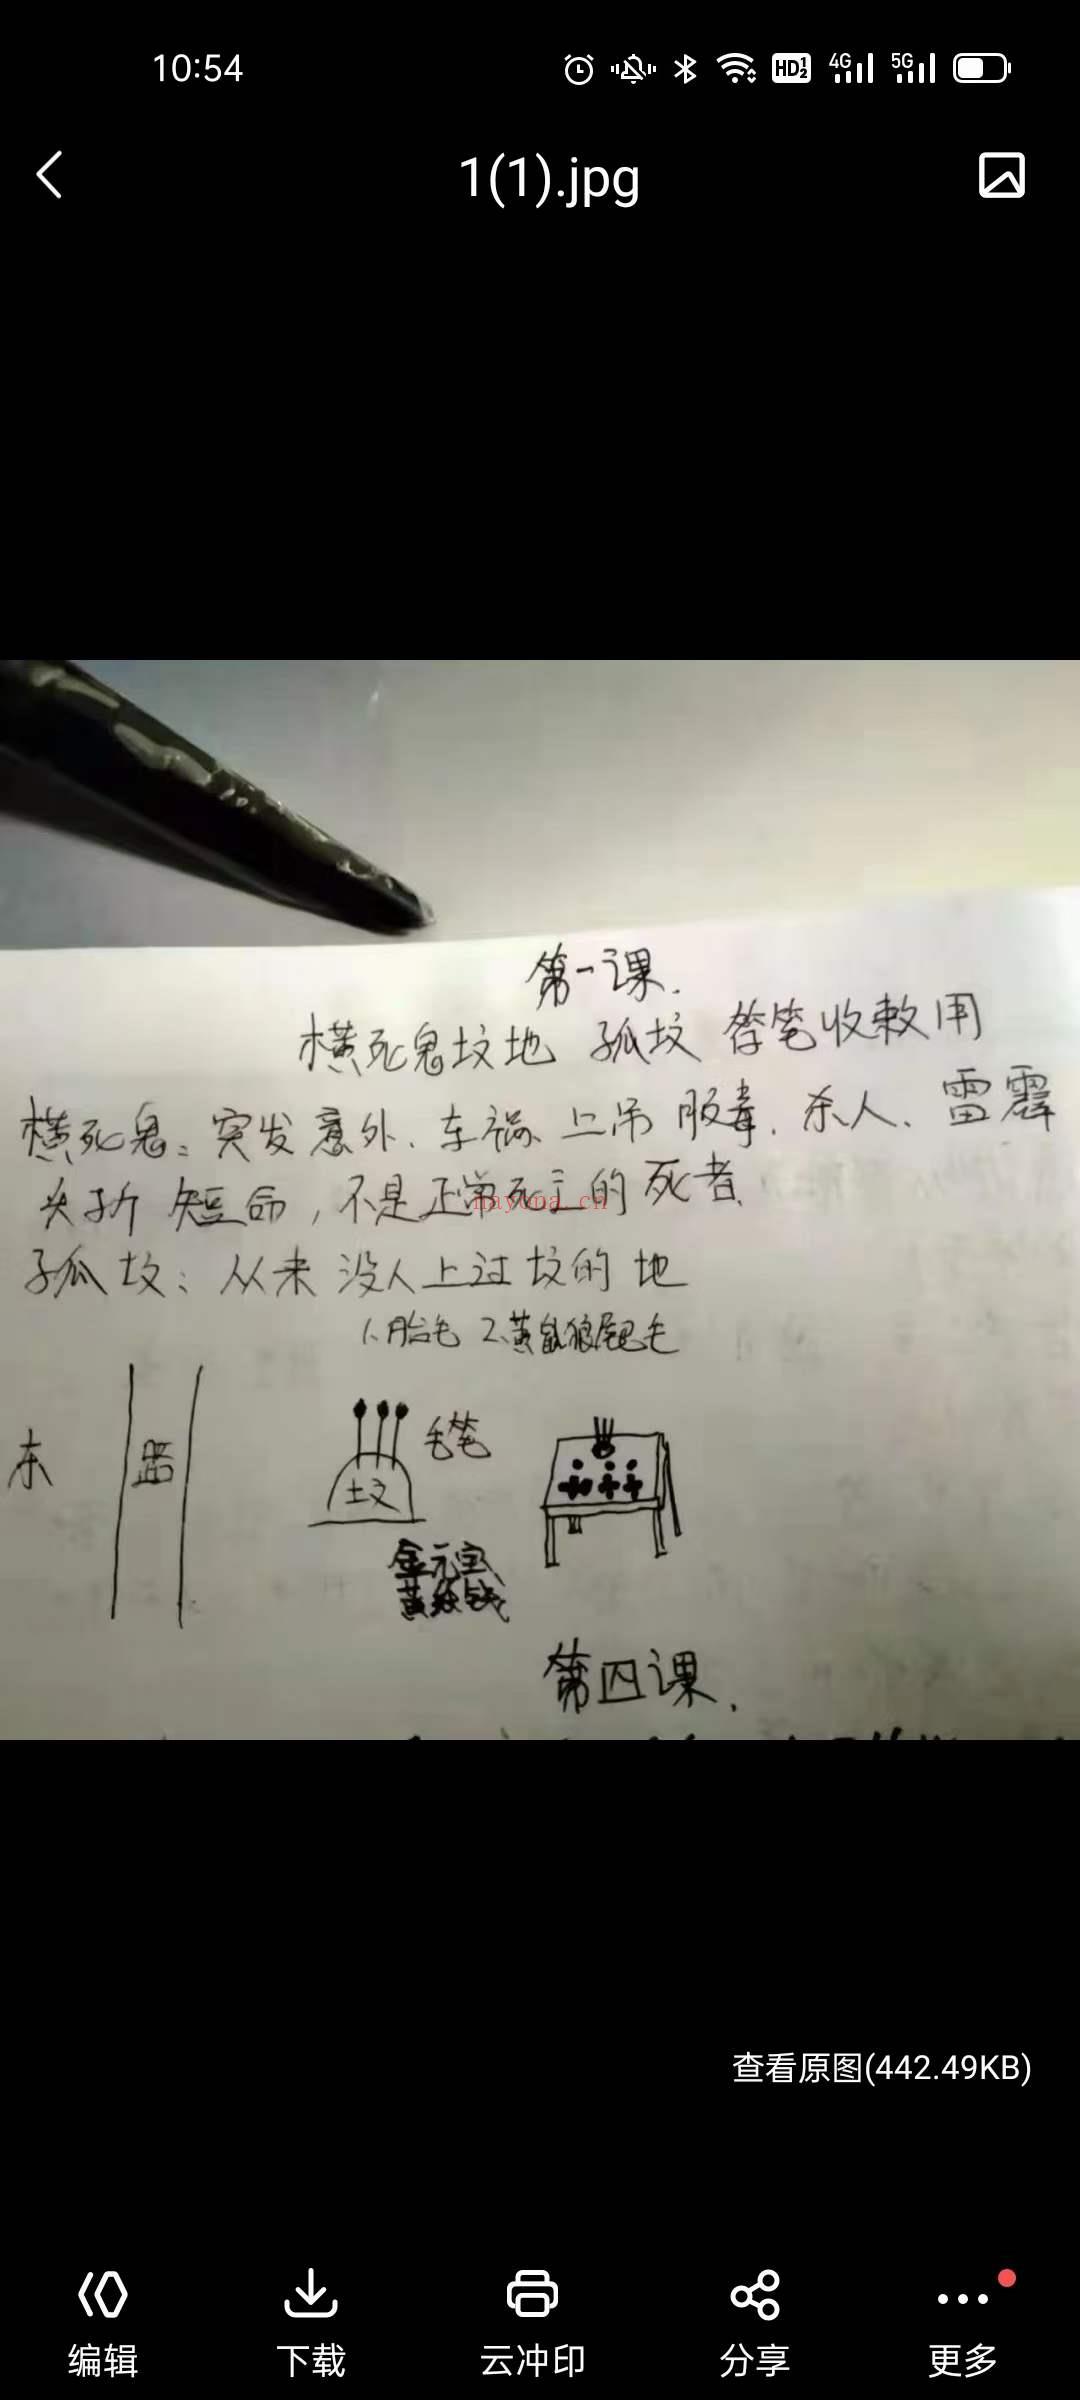 10:54
HD 1 2 4G 5G
1(1).jpg
第一课.
横死鬼坟地 孤坟 笔收敕用
横死鬼: 突发意外、车祸 上吊 服毒. 杀人、雷霹
夭折 短命, 不是正常死亡的死者.
nayona.cn
孤坟: 从来没人上过坟的地
1、胎毛 2、黄鼠狼尾巴毛
东
路
坟
毛笔
金元宝
黄纸钱
第四课.
查看原图(442.49KB)
编辑
下载
云冲印
分享
更多